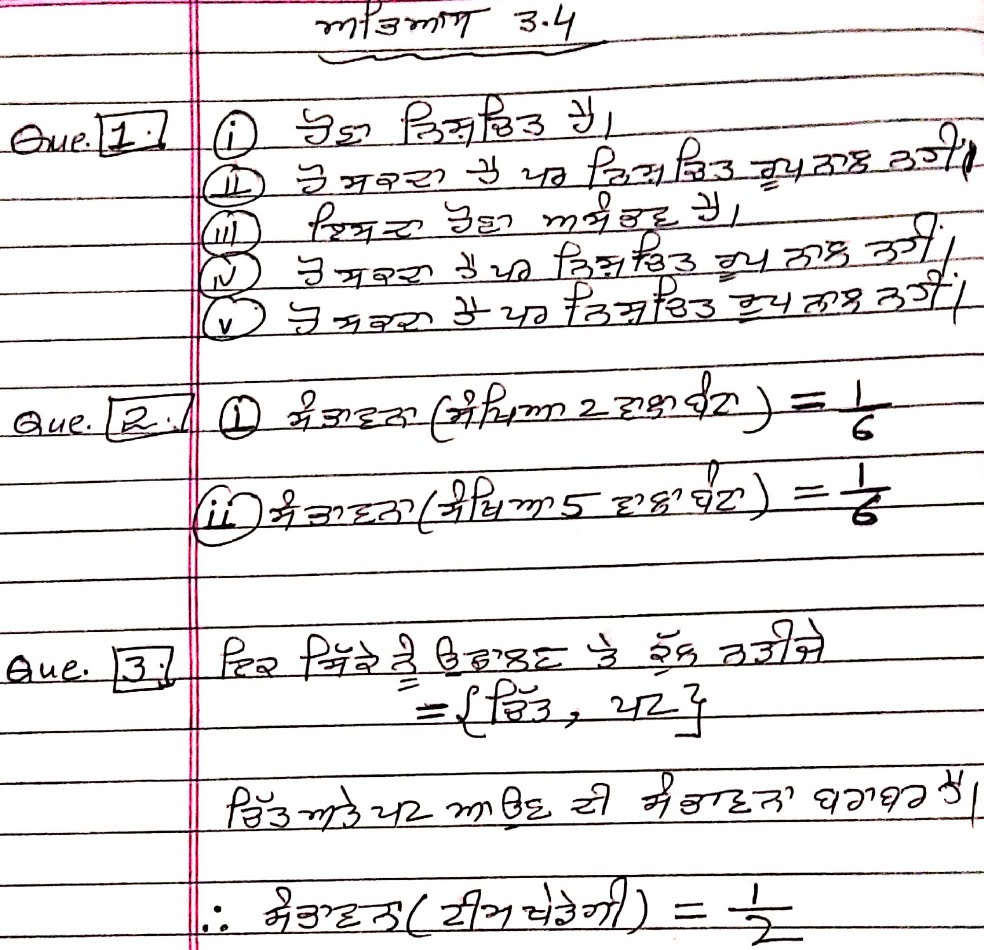 ਅਭਿਆਸ 3.4
Que. 1. (i) ਹੋਣਾ ਨਿਸ਼ਚਿਤ ਹੈ।
(ii) ਹੋ ਸਕਦਾ ਹੈ ਪਰ ਨਿਸ਼ਚਿਤ ਰੂਪ ਨਾਲ ਨਹੀਂ।
(iii) ਇਸਦਾ ਹੋਣਾ ਅਸੰਭਵ ਹੈ।
(iv) ਹੋ ਸਕਦਾ ਹੈ ਪਰ ਨਿਸ਼ਚਿਤ ਰੂਪ ਨਾਲ ਨਹੀਂ।
(v) ਹੋ ਸਕਦਾ ਹੈ ਪਰ ਨਿਸ਼ਚਿਤ ਰੂਪ ਨਾਲ ਨਹੀਂ।
Que. 2. (i) ਸੰਭਾਵਨਾ (ਸੰਖਿਆ 2 ਵਾਲਾ ਬੰਟਾ) = 1/6
(ii) ਸੰਭਾਵਨਾ (ਸੰਖਿਆ 5 ਵਾਲਾ ਬੰਟਾ) = 1/6
Que. 3. ਇਕ ਸਿੱਕੇ ਨੂੰ ਉਛਾਲਣ ਤੇ ਕੁੱਲ ਨਤੀਜੇ
= {ਚਿੱਤ, ਪਟ}
ਚਿੱਤ ਅਤੇ ਪਟ ਆਉਣ ਦੀ ਸੰਭਾਵਨਾ ਬਰਾਬਰ ਹੈ।
∴ ਸੰਭਾਵਨਾ (ਟੀਮ ਖੇਡੇਗੀ) = 1/2